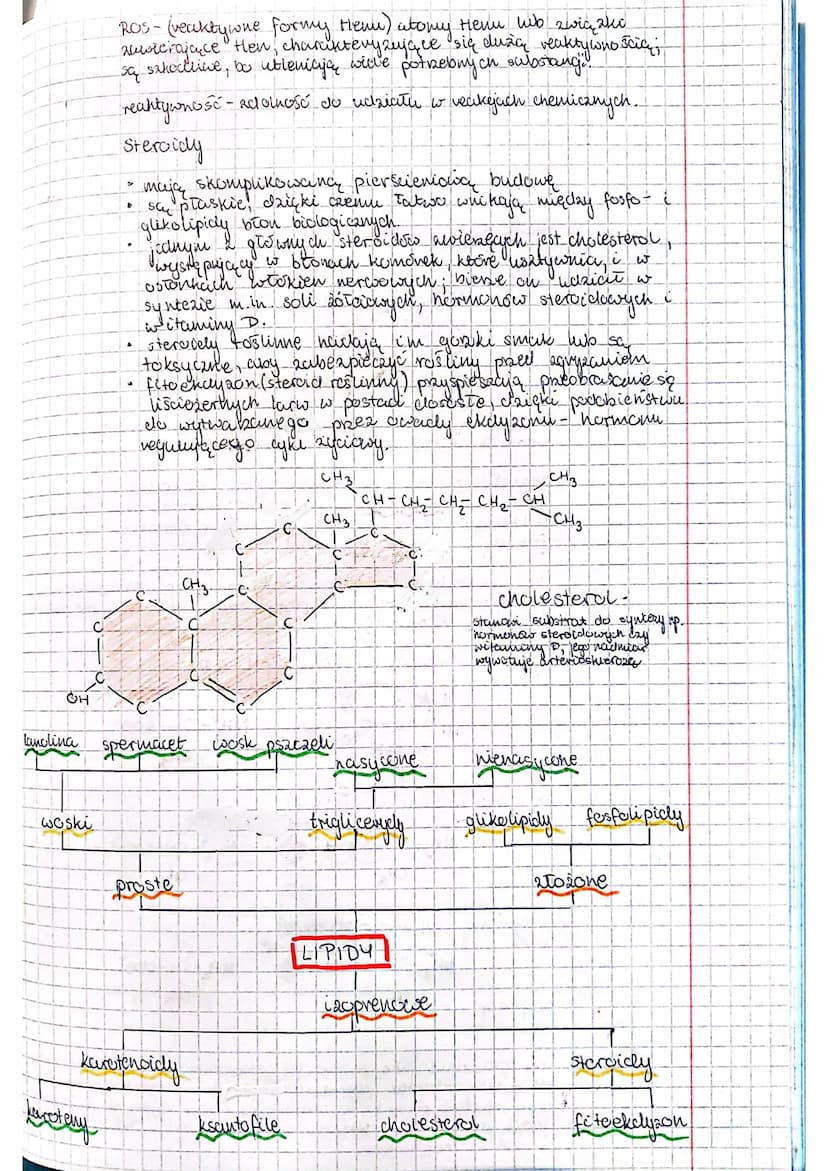 ROS - (reaktywne formy tlenu) atomy tlenu lub związki
zawierające tlen, charakteryzujące się dużą reaktywnością;
są szkodliwe, bo utleniają wiele potrzebnych substancji.
reaktywność - zdolność do udziału w reakcjach chemicznych.
Steroidy
• mają skomplikowaną pierścieniową budowę
• są płaskie, dzięki czemu łatwo wnikają między fosfo- i
glikolipidy błon biologicznych.
• jednym z głównych steroidów zwierzęcych jest cholesterol,
występujący w błonach komórek, które usztywnia, i w
osłonkach włókien nerwowych; bierze on udział w
syntezie m.in. soli żółciowych, hormonów steroidowych i
witaminy D.
• steroidy roślinne nadają im gorzki smak lub są
toksyczne, aby zabezpieczyć rośliny przed zgryzaniem
• fitoekdyzon (steroid roślinny) przyspieszają przeobrażenie są
liściożernych larw w postaci dorosłe, dzięki podobieństwu
do wytwarzanego przez owady ekdyzonu - hormonu
regulującego cykl życiowy.
CH3 CH3
CH - CH2 - CH2 - CH2 - CH
CH3 CH3
C C
C C C
C C
CH3
C C
cholesterol -
C C C
stanowi substrat do syntezy np.
hormonów steroidowych czy
witaminy D, jego nadmiar
wywołuje arteriosklerozę
C C C
OH C C
lanolina spermacet wosk pszczeli
nasycone nienasycone
woski triglicerydy glikolipidy fosfolipidy
proste złożone
LIPIDY
izoprenowe
karotenoidy steroidy
karoteny ksantofile cholesterol fitoekdyzon